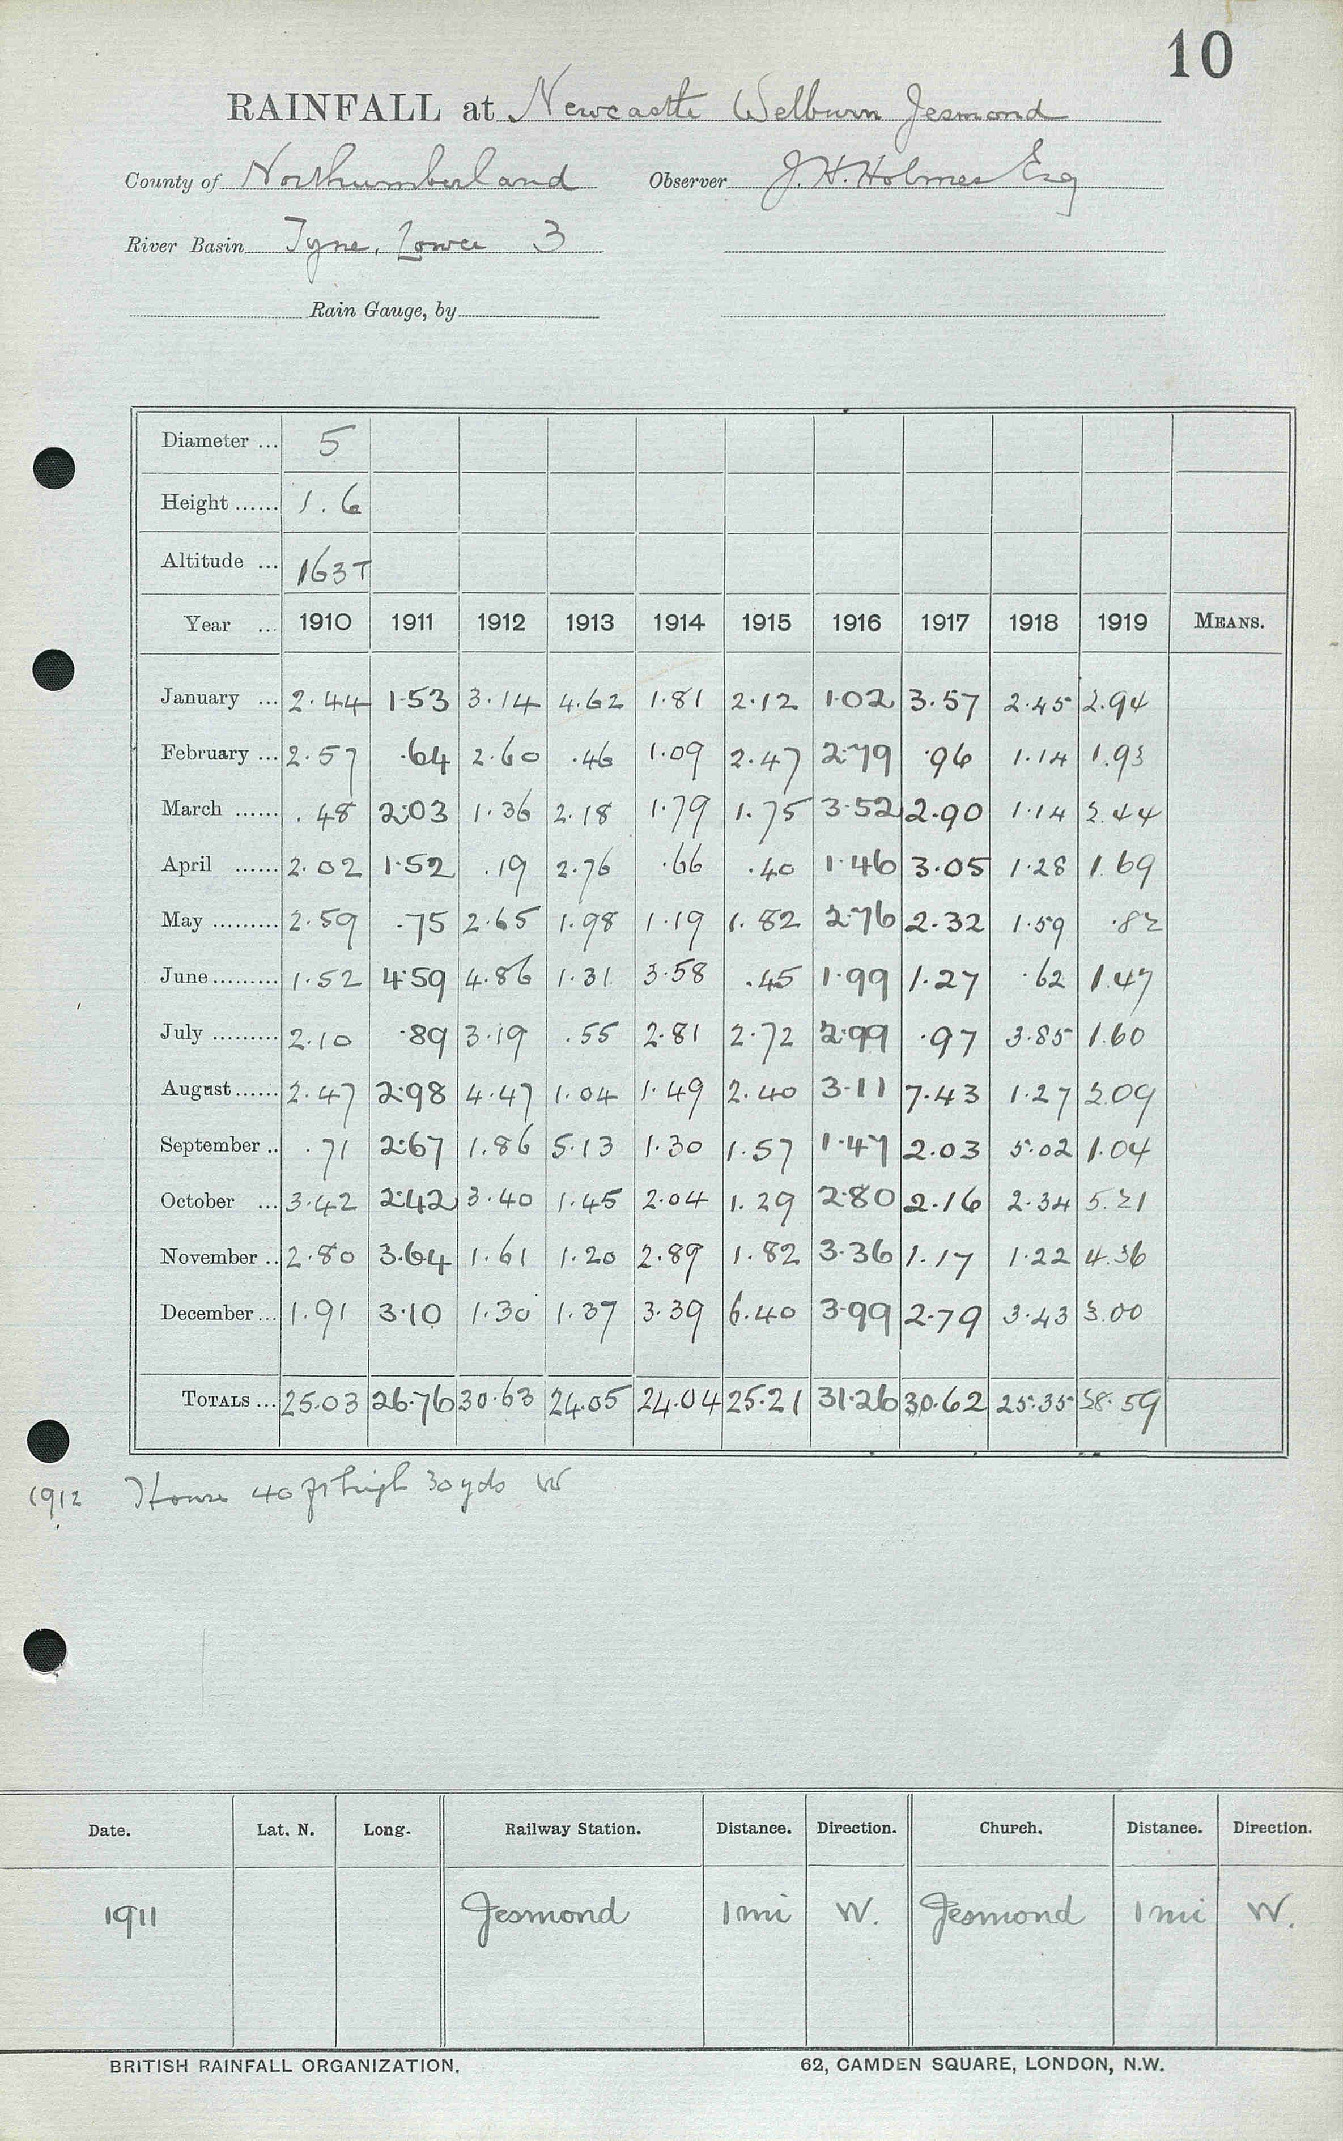 10
RAINFALL at Newcastle Welburn Jesmond
County of Northumberland Observer J. H. Holmes Esq
River Basin Tyne, Lower 3
Rain Gauge, by
Diameter ... 5
Height ...... 1.6
Altitude ... 163T
Year ... 1910 1911 1912 1913 1914 1915 1916 1917 1918 1919 MEANS.
January ... 2.44 1.53 3.14 4.62 1.81 2.12 1.02 3.57 2.45 2.94
February ... 2.57 .64 2.60 .46 1.09 2.47 2.79 .96 1.14 1.93
March ...... .48 2.03 1.36 2.18 1.79 1.75 3.52 2.90 1.14 2.44
April ...... 2.02 1.52 .19 2.76 .66 .40 1.46 3.05 1.28 1.69
May ......... 2.59 .75 2.65 1.98 1.19 1.82 2.76 2.32 1.59 .82
June ......... 1.52 4.59 4.86 1.31 3.58 .45 1.99 1.27 .62 1.47
July ......... 2.10 .89 3.19 .55 2.81 2.72 2.99 .97 3.85 1.60
August ...... 2.47 2.98 4.47 1.04 1.49 2.40 3.11 7.43 1.27 2.09
September .. .71 2.67 1.86 5.13 1.30 1.57 1.47 2.03 5.02 1.04
October ... 3.42 2.42 3.40 1.45 2.04 1.29 2.80 2.16 2.34 5.21
November .. 2.80 3.64 1.61 1.20 2.89 1.82 3.36 1.17 1.22 4.36
December ... 1.91 3.10 1.30 1.37 3.39 6.40 3.99 2.79 3.43 3.00
TOTALS ... 25.03 26.76 30.63 24.05 24.04 25.21 31.26 30.62 25.35 28.59
1912 House 40 ft high 30 yds W
Date. Lat. N. Long. Railway Station. Distance. Direction. Church. Distance. Direction.
1911 Jesmond 1 mi W. Jesmond 1 mi W.
BRITISH RAINFALL ORGANIZATION. 62, CAMDEN SQUARE, LONDON, N.W.